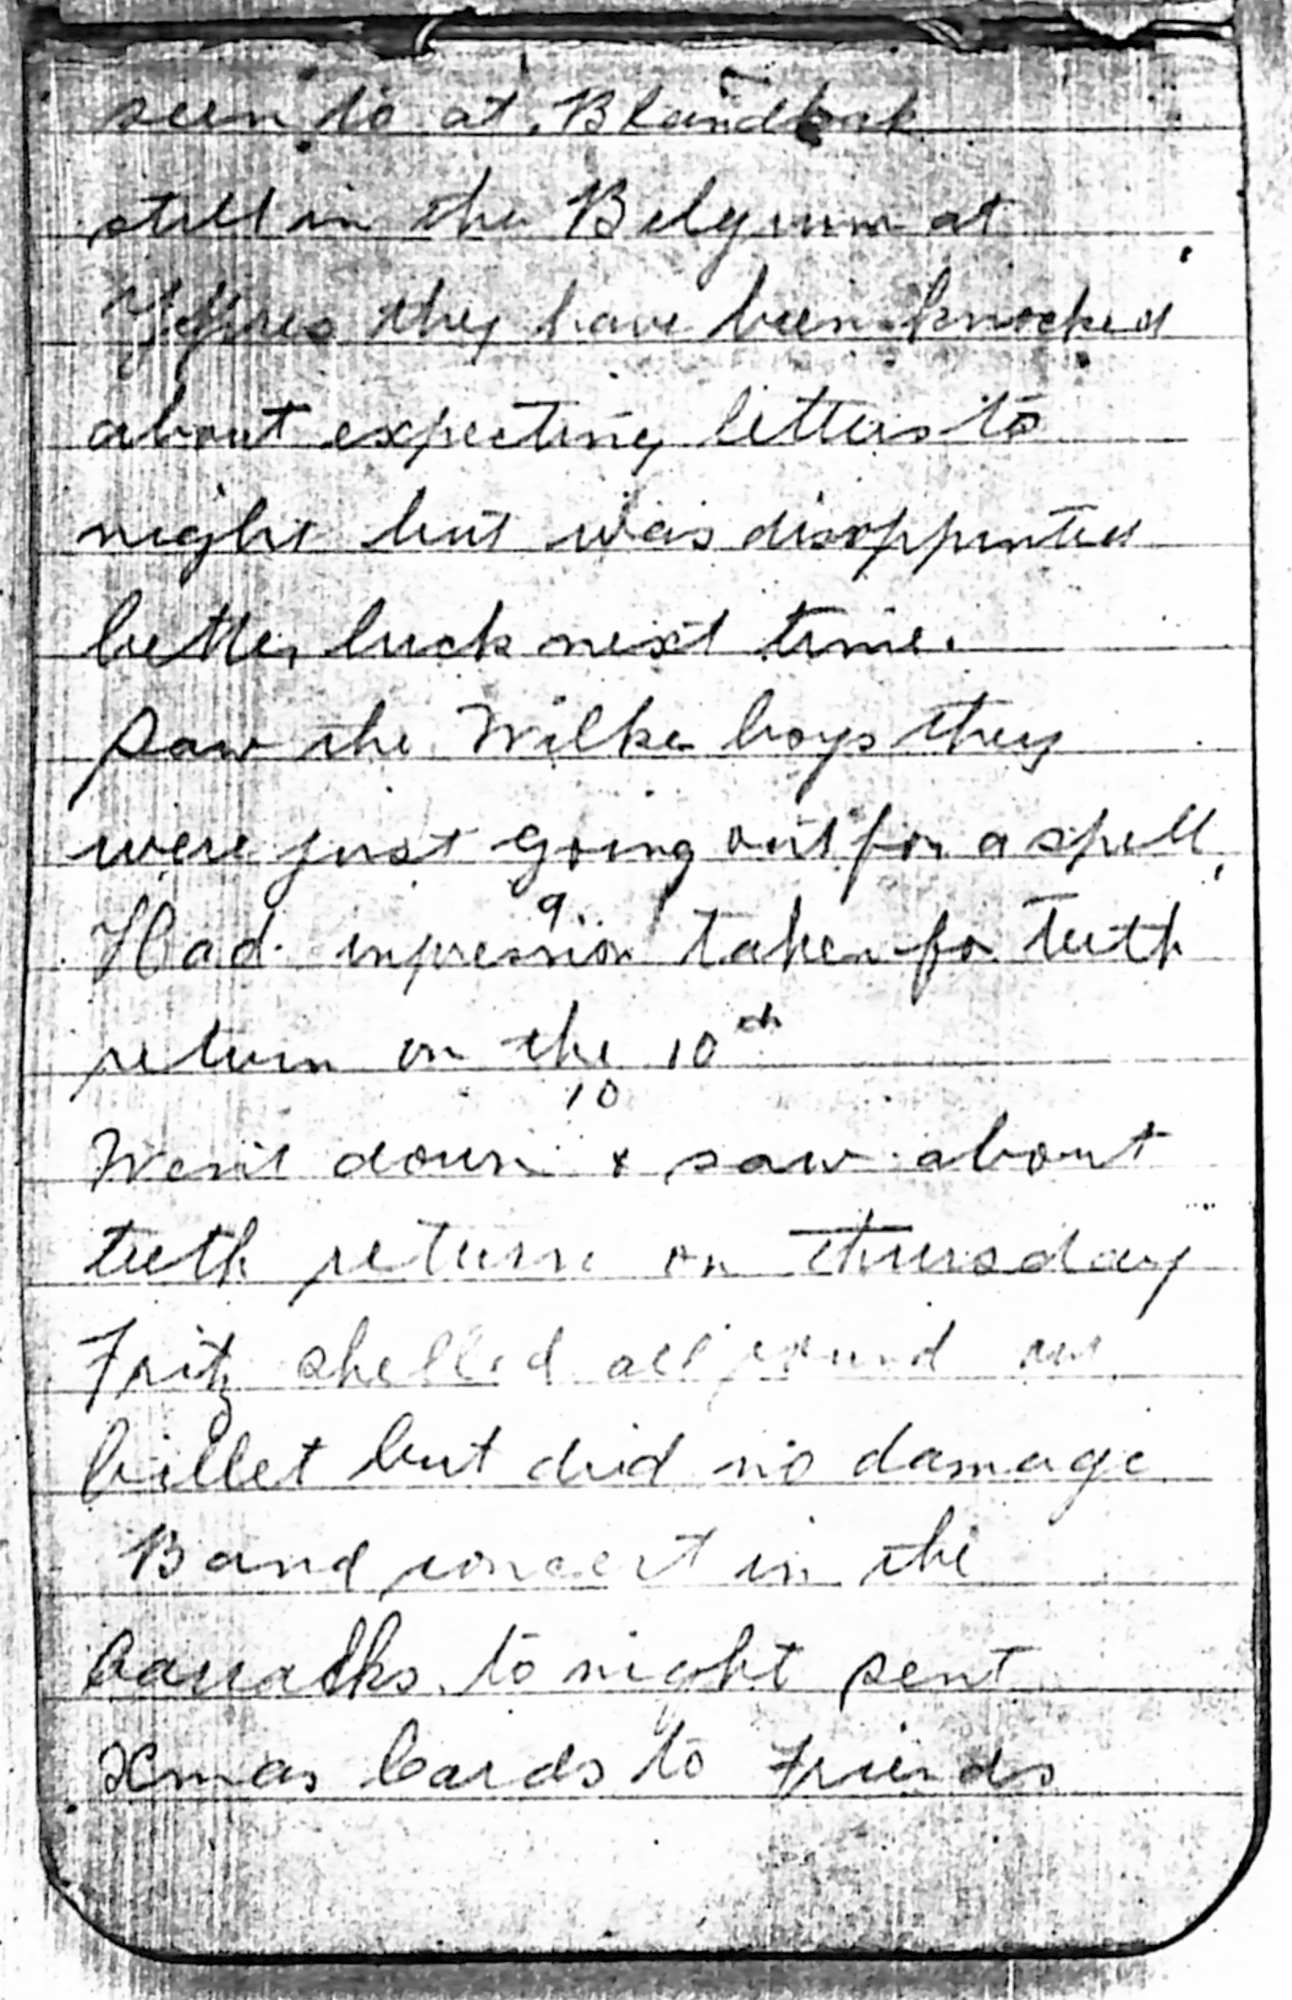 seen to at
still in the Belgium at
Yppres they have been knocked
about expecting letters to
night but was disappinted
better luck next time.
Saw the Wilke boys they
were just going out for a spell
9
Had impression taken for teeth
return on the 10th
10
Went down & saw about
teeth return on Thursday
Fritz shelled all round our
billet but did no damage
Band concert in the
barracks to night sent
Xmas Cards to Friends